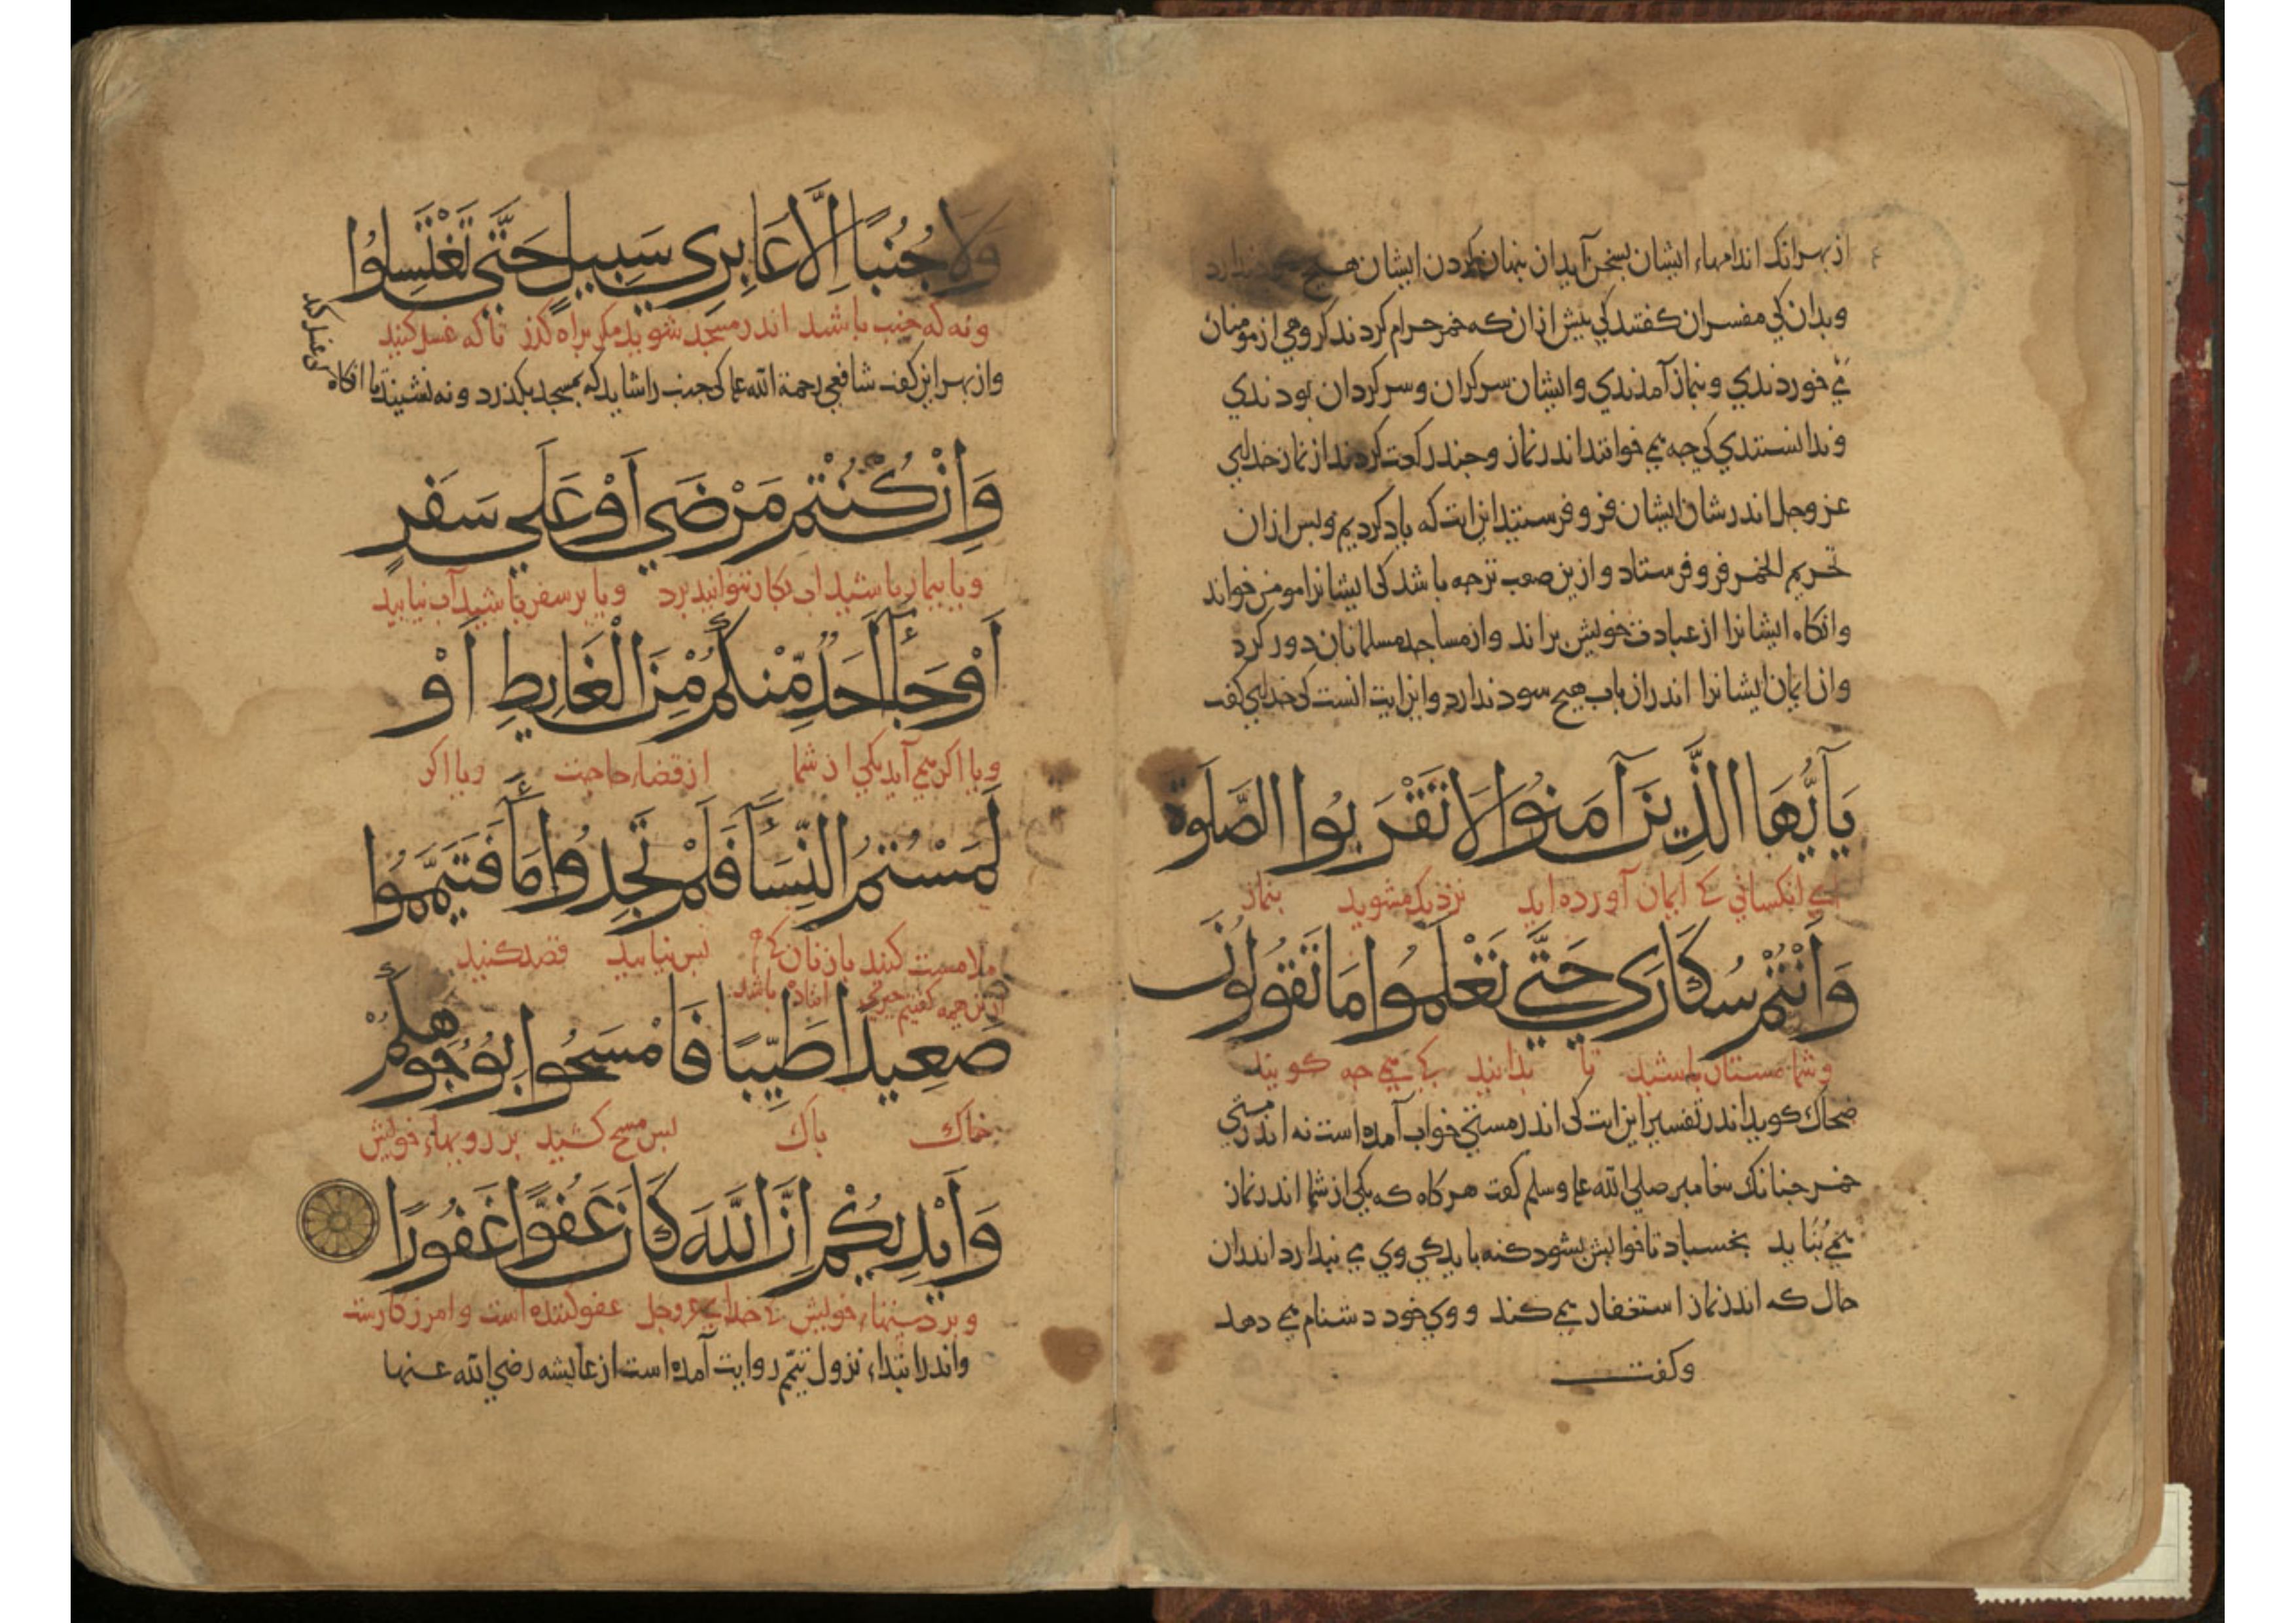 از بهر انک اندامهاء ایشان بسخن آید ان بنهان کردن ایشان هیچ سود ندارد
وبدان کی مفسران کفتند کی بیش ازان که خمر حرام کردند کروهی از مومنان
می خوردندي و بنماز آمدندي وایشان سرکران وسرکردان بودندي
وندانستندي کی چه می خوانند اندر نماز وجند رکعت کردند از نماز خدای
عز وجل اندر شان ایشان فرو فرستید این ایت که یاد کردیم وبس ازان
تحریم الخمر فرو فرستاد و ازین صعب تر جه باشد کی ایشانرا مومن خواند
وانکاه ایشانرا از عبادت خویش براند و از مساجد مسلمانان دور کرد
وان ایمان ایشانرا اندر ان باب هیچ سود ندارد و این ایت انست کی خدای کفت
يَآ اَيُّهَا الَّذِينَ آمَنُوا لَا تَقْرَبُوا الصَّلَوةَ
اي انکسانی کی ایمان آورده اید نزدیک مشوید بنماز
وَاَنْتُمْ سُكَارَي حَتَّي تَعْلَمُوا مَا تَقُولُونَ
وشما مستان باشید تا بدانید کی می جه کویید
ضحاک کوید اندر تفسیر این ایت کی اندر مستی خواب آمده است نه اندر مستی
خمر جنانک بیغامبر صلی الله علیه وسلم کفت هرکاه که یکی از شما اندر نماز
بخسباد تا خوابش بشود کنه باید کی وی می نبدارد اندران
حال که اندر نماز استغفار می کند و وی خود دشنام می دهد
وکفت
وَلَا جُنُبًا اِلَّا عَابِرِي سَبِيلٍ حَتَّي تَغْتَسِلُوا
ونه که جنب باشید اندر مسجد شوید مکر براه کذر تا که غسل کنید
واز بهر این کفت شافعی رحمة الله علیه کی جنب را شاید که بمسجد بکذرد و نه نشیند تا انکاه
کی غسل کند
وَاِنْ كُنْتُمْ مَرْضَي اَوْ عَلَي سَفَرٍ
ویا بیمار باشید اب بکار نتوانید برد ویا بر سفر باشید آب نیابید
اَوْ جَآءَ اَحَدٌ مِّنْكُمْ مِنَ الْغَايِطِ اَوْ
ویا اکر می آید یکی از شما از قضاء حاجت ویا اکر
لَمَسْتُمُ النِّسَآءَ فَلَمْ تَجِدُوا مَآءً فَتَيَمَّمُوا
ملامست کنید با زنان بس نیابید قصد کنید
ازین همه کفتیم جیزی افتاده باشد
صَعِيدًا طَيِّبًا فَامْسَحُوا بِوُجُوهِكُمْ
خاک باک بس مسح کشید بر رویهاء خویش
وَاَيْدِيكُمْ اِنَّ اللَّهَ كَانَ عَفُوًّا غَفُورًا
وبر دستهاء خویش کی خدای عزوجل عفو کننده است و امرزکارست
واندر ابتداء نزول تیمّم روایت آمده است از عایشه رضی الله عنها